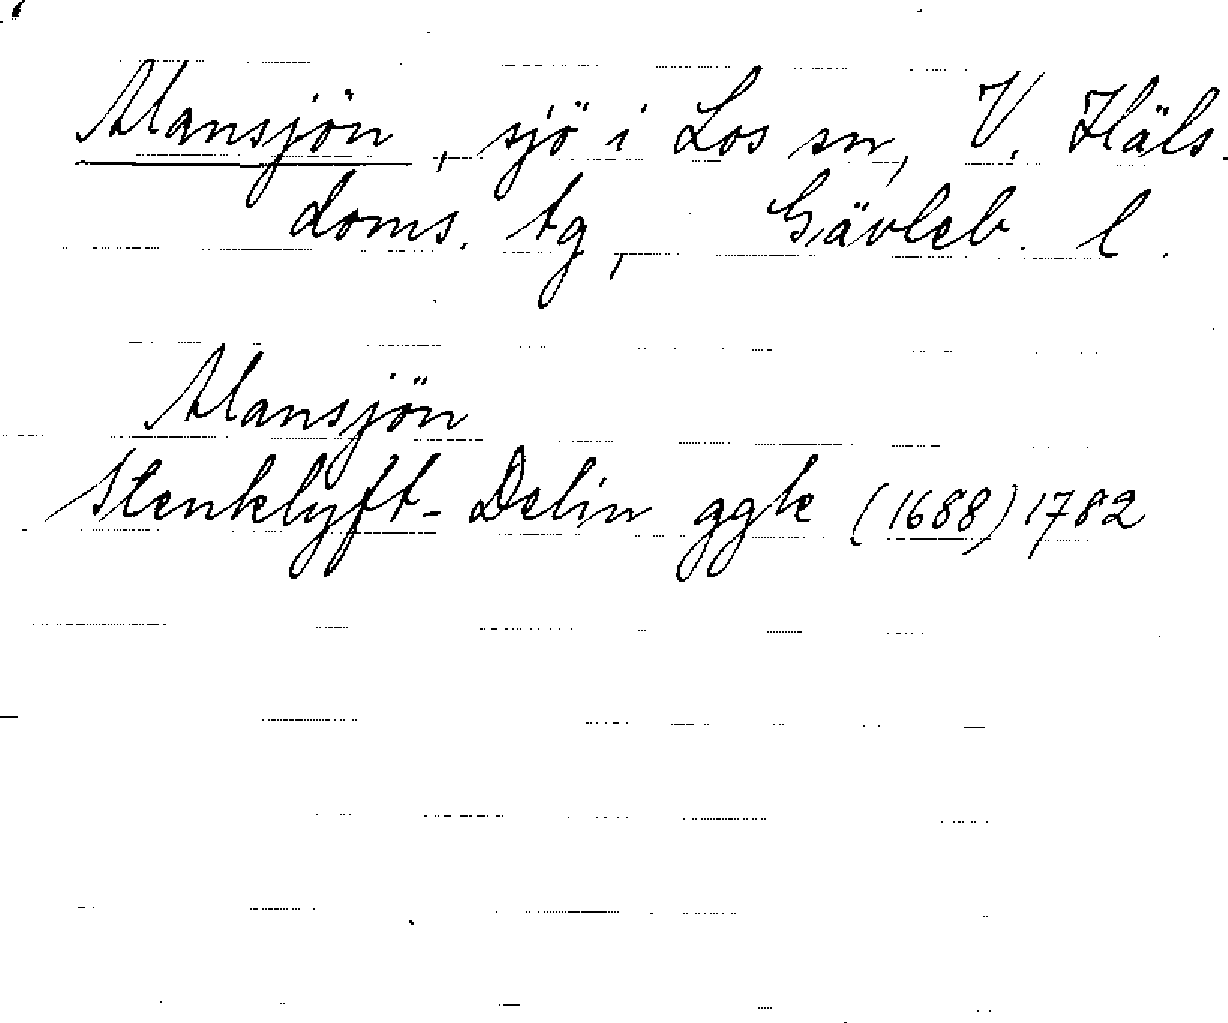 Mansjön, sjö i Los sn, V. Häls.
doms. tg, Gävleb. l.
Mansjön
Stenklyft- Delin ggk (1688) 1782